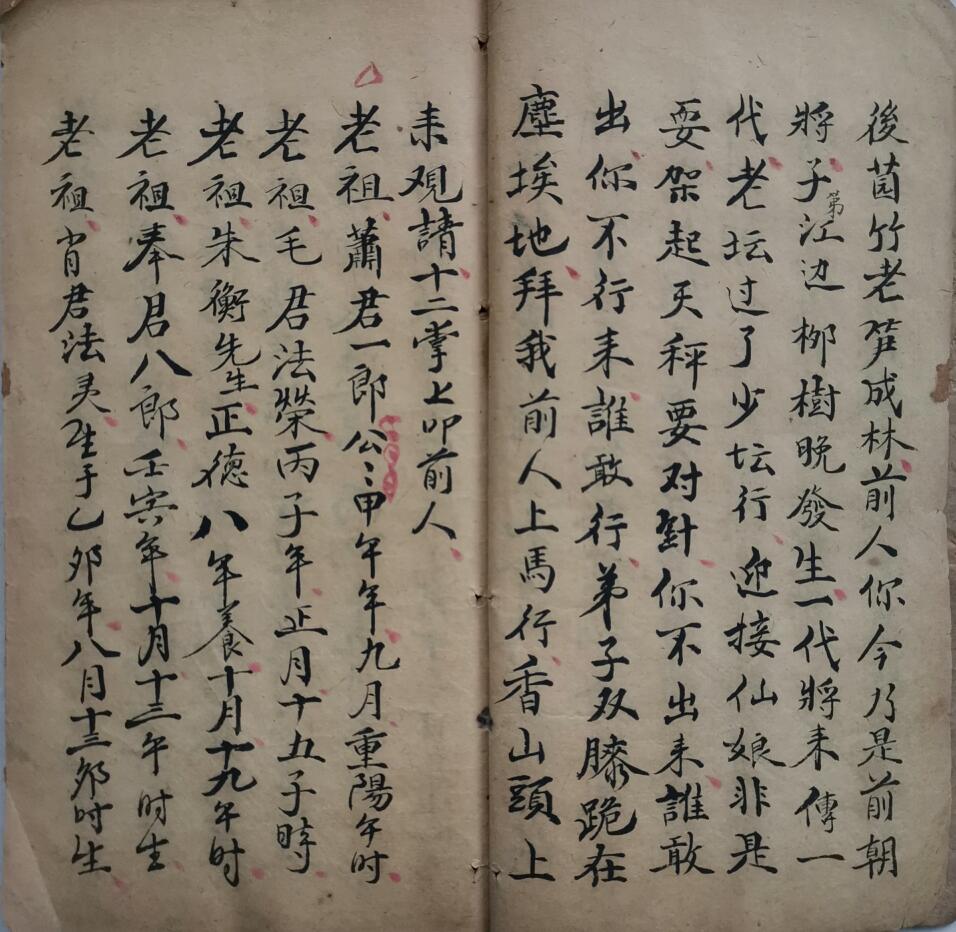 後茵竹老笋成林前人你今乃是前朝
將子第江边柳樹晚發生一代將来傳一
代老坛过了少坛行迎接仙娘非是
耍架起天秤要对對你不出来誰敢
出你不行来誰敢行弟子双膝跪在
塵埃地拜我前人上馬行香山頭上
来观請十二掌上卯前人
老祖蕭君一郎公〻甲午年九月重陽午时
老祖毛君法荣丙子年正月十五子時
老祖朱衡先生正德八年養十月十九午时
老祖奉君八郎壬寅年十月十三午时生
老祖肖君法灵生于乙卯年八月十三卯时生